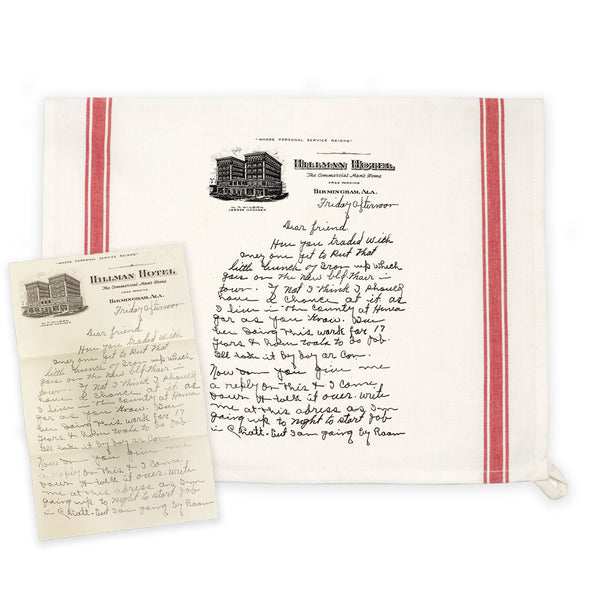 "WHERE PERSONAL SERVICE REIGNS"
HILLMAN HOTEL
The Commercial Man's Home
FREE PARKING
BIRMINGHAM, ALA.
W. C. WILSON
LESSEE MANAGER
Friday afternoon
Dear friend.
Hav you traded with
aney one yet to Put That
little bunch of Iron up which
goes on the new Thair in
town. If Not I Think I should
have a chance at it as
I live in the county at
far as you know. I've
ben doing this work for 17
years & hav tools to do job
I'll take it by day or Con.
Now you give me
a reply on this & I come
down & talk it over. write
me at this adress as I'm
going up to night to start job
in But I am going by Room
"WHERE PERSONAL SERVICE REIGNS"
HILLMAN HOTEL
The Commercial Man's Home
BIRMINGHAM, ALA.
Friday afternoon
Dear friend
Hav you traded with
aney one yet to Put That
little bunch of Iron up which
goes on the new Thair in
town. If Not I Think I should
have a chance at it as
I live in the county at
far as you know. I've
ben doing this work for 17
years & hav tools to do job
I'll take it by day or Con.
Now you give me
a reply on this & I come
down & talk it over. write
me at this adress as I'm
going up to night to start job
in But I am going by Room